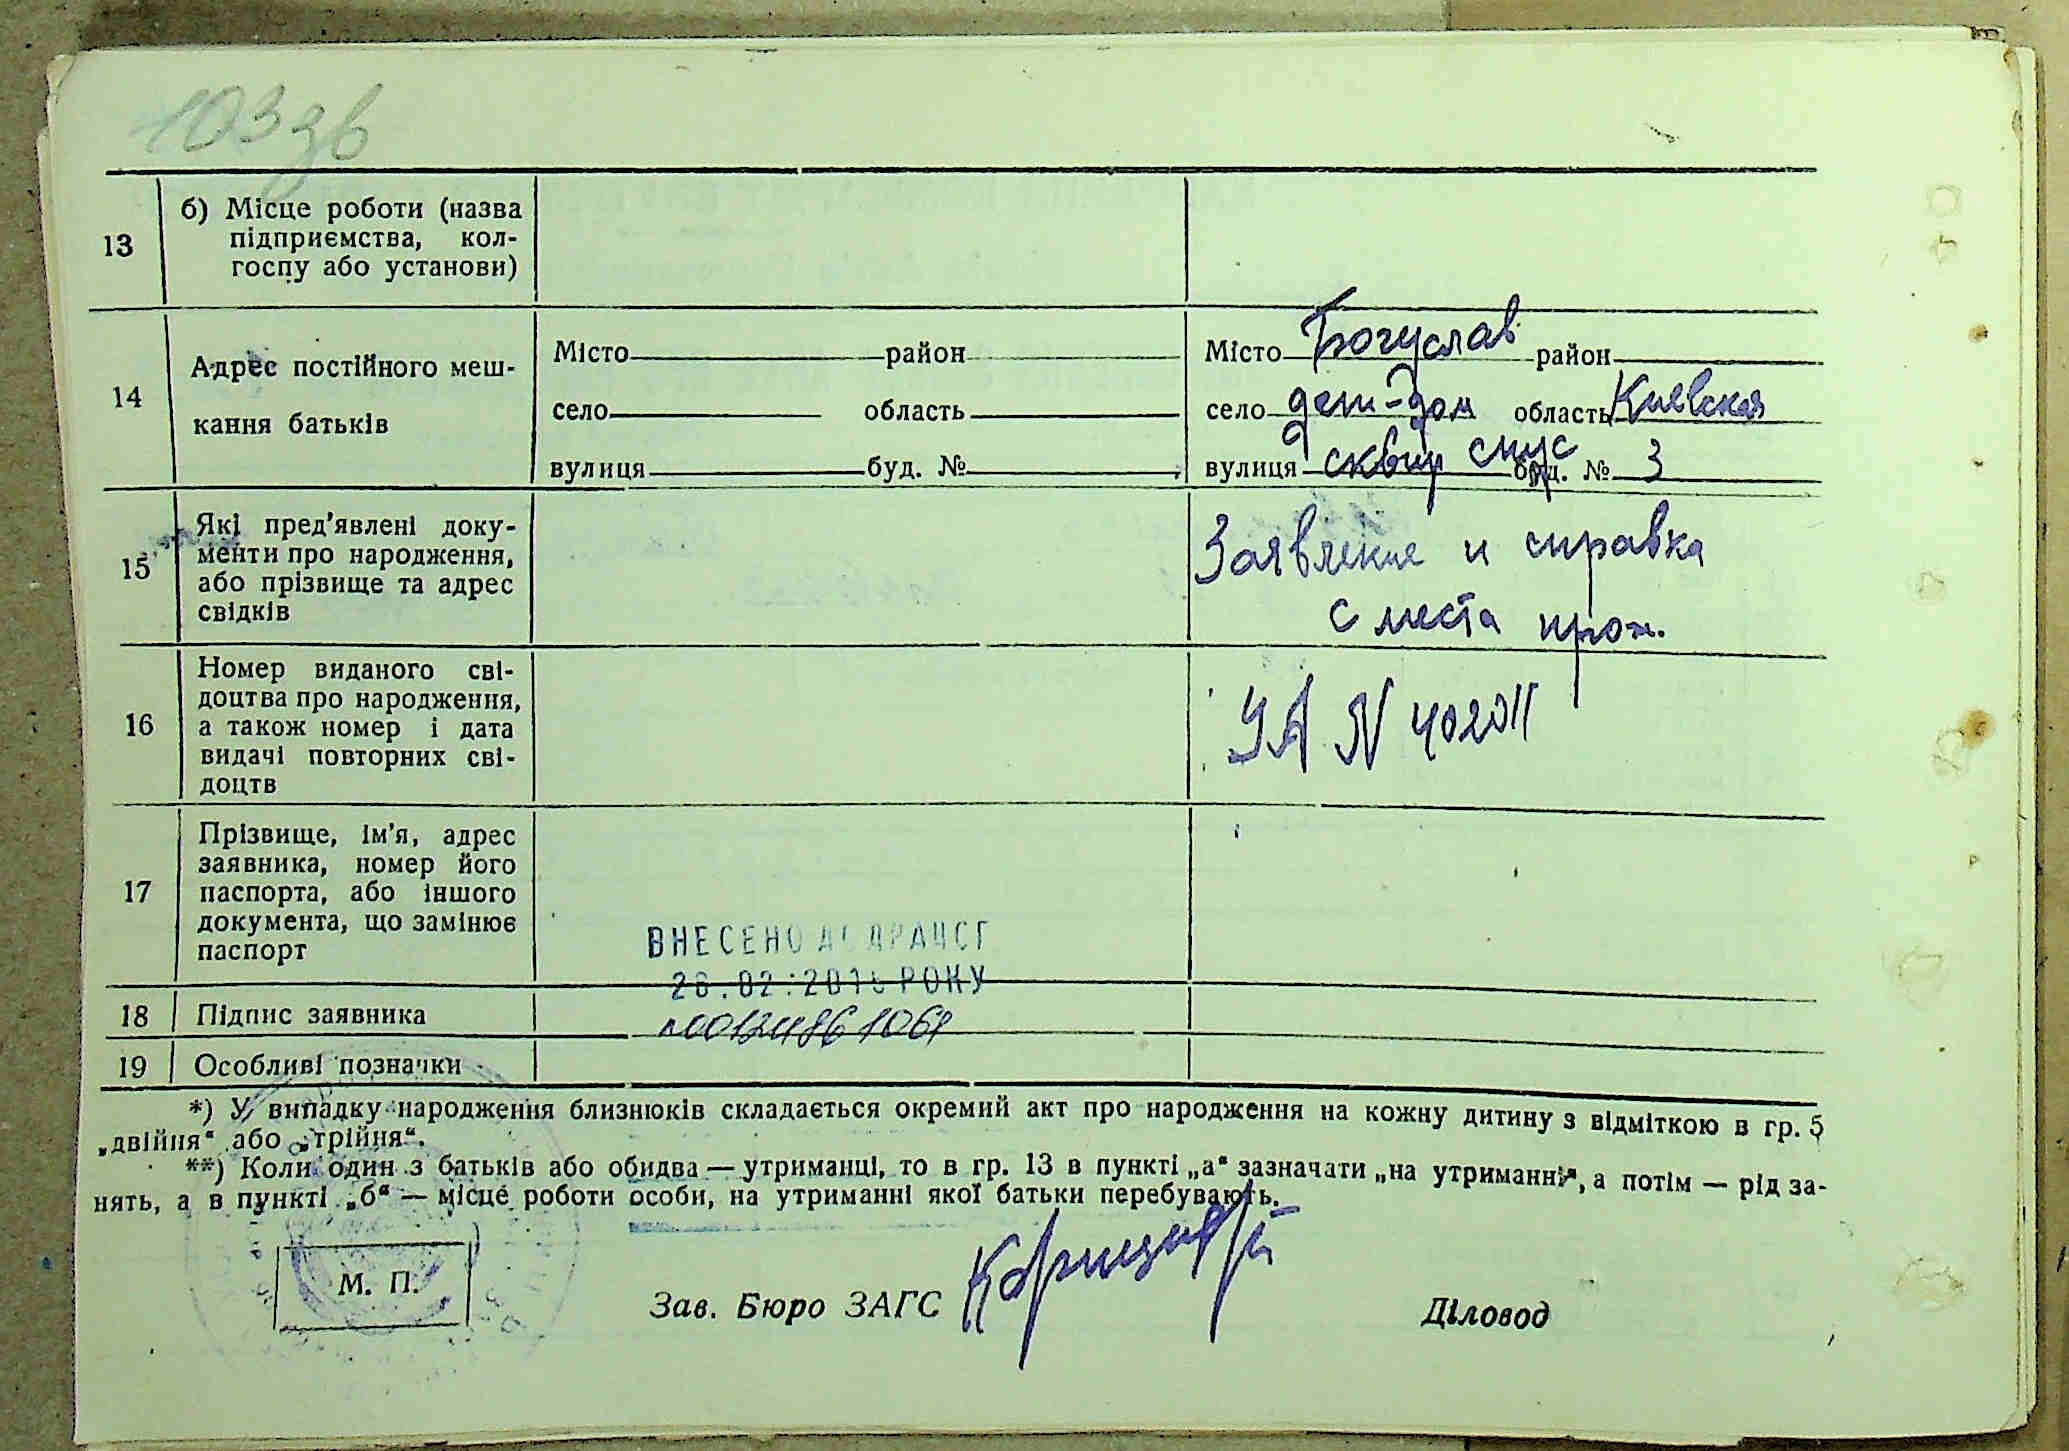 103 зв
13
б) Місце роботи (назва
підприємства, кол-
госпу або установи)
14
Адрес постійного меш-
кання батьків
Місто район
село область
вулиця буд. №
Місто Богуслав район
село дет-дом область Киевская
вулиця сквир спус буд. № 3
15
Які пред'явлені доку-
менти про народження,
або прізвище та адрес
свідків
Заявление и справка
с места прож.
16
Номер виданого сві-
доцтва про народження,
а також номер і дата
видачі повторних сві-
доцтв
УА N 402011
17
Прізвище, ім'я, адрес
заявника, номер його
паспорта, або іншого
документа, що замінює
паспорт
ВНЕСЕНО ДО ДРАЦСГ
26.02.201 РОКУ
18
Підпис заявника
19
Особливі позначки
*) У випадку народження близнюків складається окремий акт про народження на кожну дитину з відміткою в гр. 5
„двійня“ або „трійня“.
**) Коли один з батьків або обидва — утриманці, то в гр. 13 в пункті „а“ зазначати „на утриманні“, а потім — рід за-
нять, а в пункті „б“ — місце роботи особи, на утриманні якої батьки перебувають.
М. П.
Зав. Бюро ЗАГС
Діловод